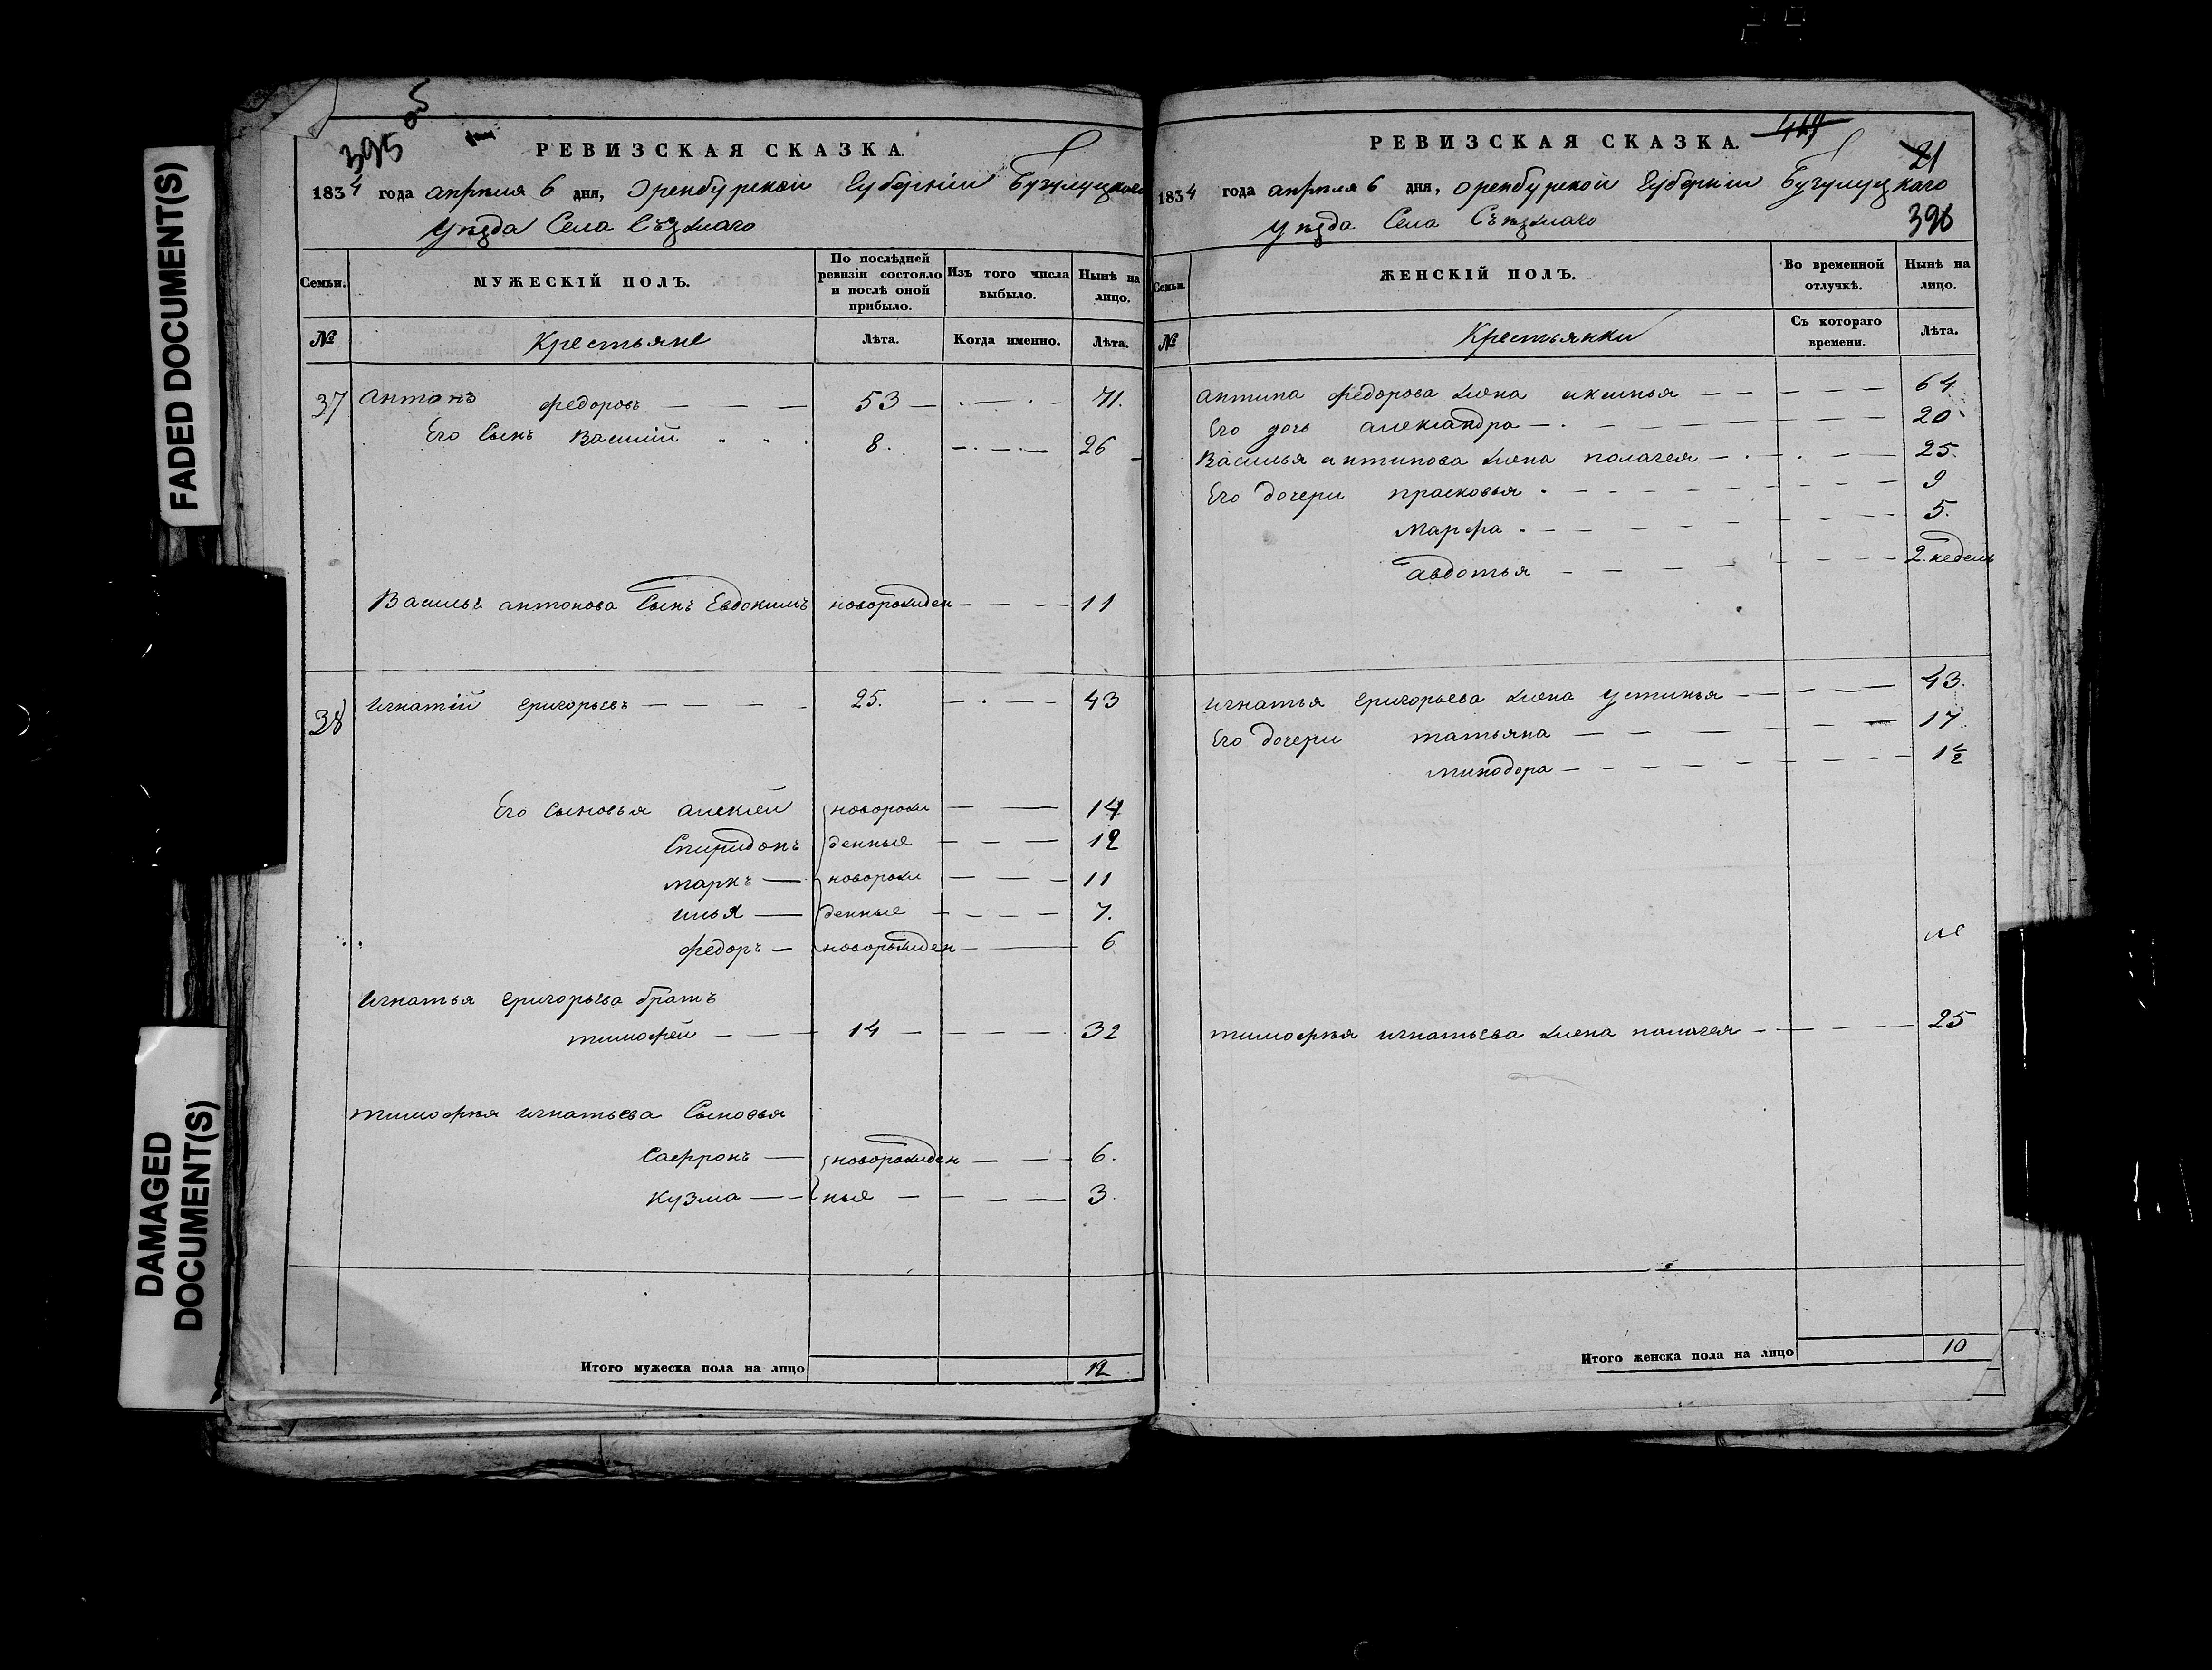 FADED DOCUMENT(S)
DAMAGED
DOCUMENT(S)
395 об
РЕВИЗСКАЯ СКАЗКА.
1834 года апреля 6 дня, Оренбурской Губернии Бугулуцкаго
Уезда Села Съезжаго
Семьи.
МУЖЕСКІЙ ПОЛЪ.
По послѣдней ревизіи состояло и послѣ оной прибыло.
Изъ того числа выбыло.
Нынѣ на лицо.
№
Крестьяне
Лѣта.
Когда именно.
Лѣта.
37 Антонъ Федоровъ — — — 53 — 71.
Его Сынъ Василій 8. 26
Василья антонова Сынъ Евдокимъ новорожден — — — 11
38 Игнатій Григорьевъ — — — 25. 43
Его Сыновья алексей новорож — — 14
Спиридонъ денные — — — 12
Маркъ — новорож — — — 11
Илья — денные — — — 7.
Федоръ — новорожден — — 6
Игнатья Григорьева братъ
тимофей — — 14 — — — 32
тимофѣя игнатьева Сыновья
Сафронъ — новорожден — — 6.
Кузма — — ные — — — 3.
Итого мужеска пола на лицо 12.
РЕВИЗСКАЯ СКАЗКА.
21
1834 года апреля 6 дня, Оренбурской Губерніи Бугулуцкаго
396
Уѣзда Села Съѣзжаго
Семьи.
ЖЕНСКІЙ ПОЛЪ.
Во временной отлучкѣ.
Нынѣ на лицо.
№
Крестьянки
Съ котораго времени.
Лѣта.
Антипа Федорова жена аксинья — — — — 64
Его дочь александра — — — — 20
Василья антипова жена полагея — — — 25.
Его дочери прасковья — — — — 9
Марфа — — — — 5.
авдотья — — — — 2. недель
Игнатья Григорьева жена Устинья — — — 43.
Его дочери татьяна — — — — 17
Минодора — — — — 1½
тимофѣя игнатьева жена палагея — — — 25
Итого женска пола на лицо 10